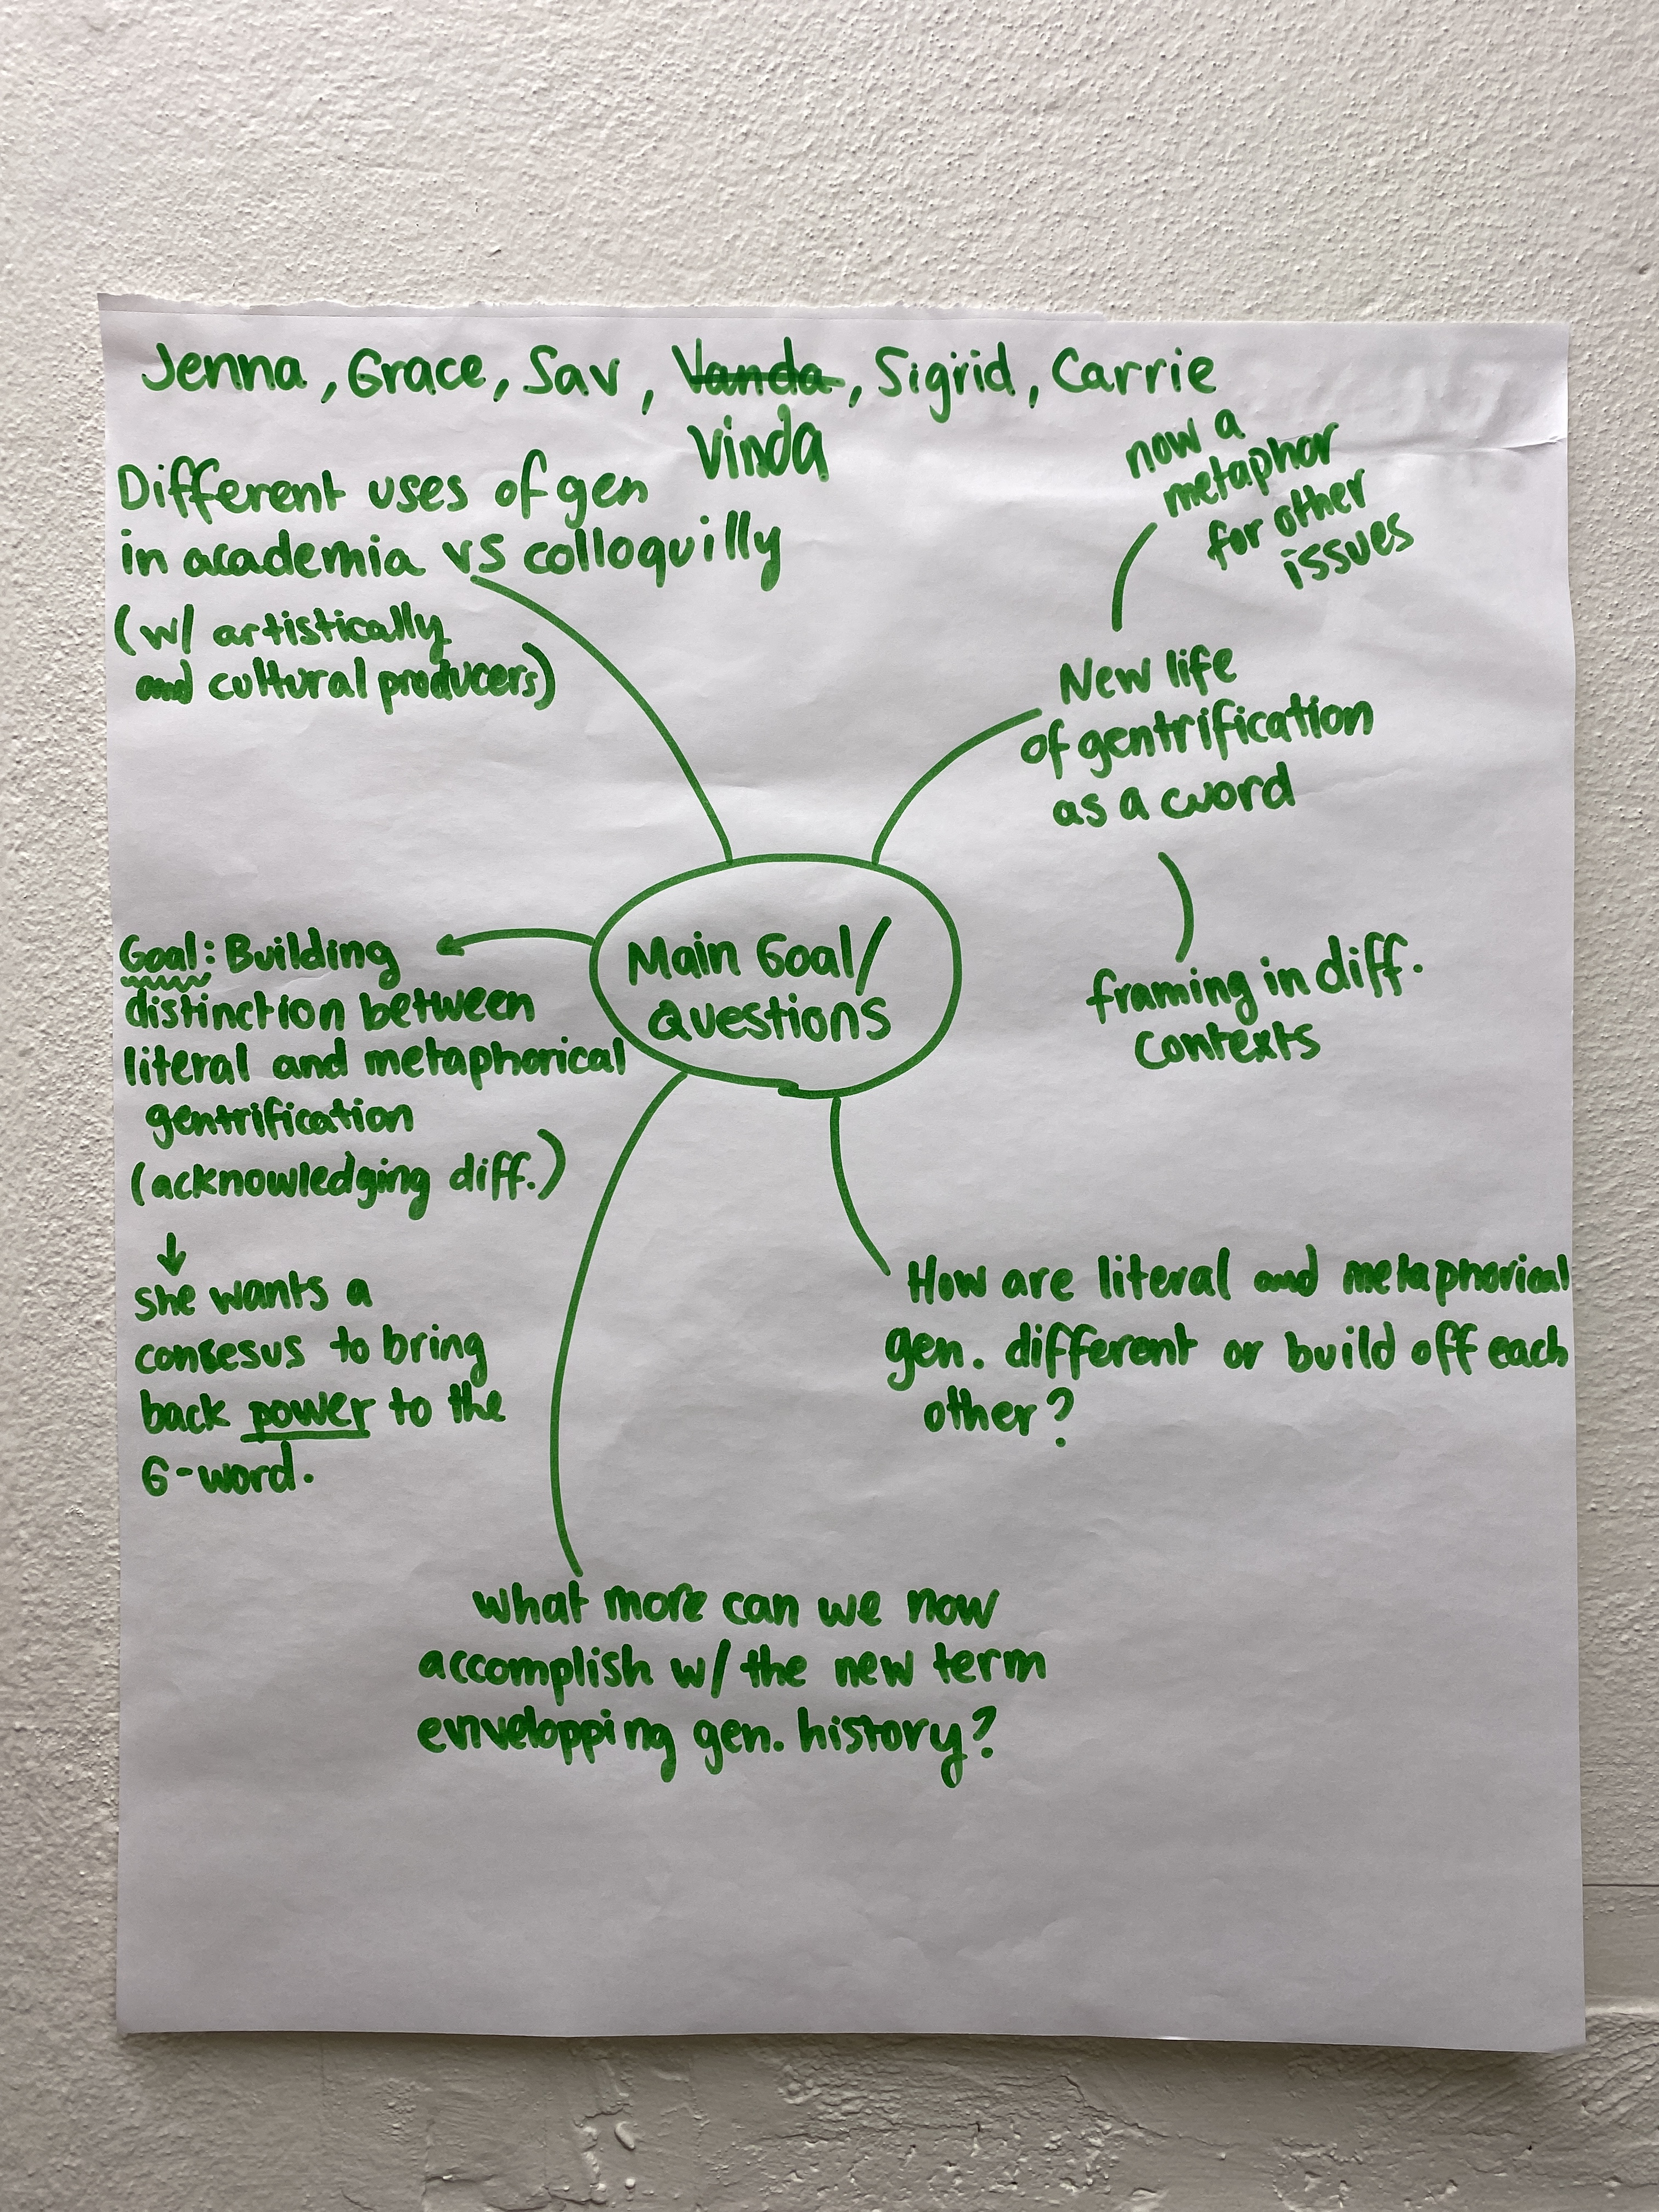 Jenna, Grace, Sav, Vanda, Sigrid, Carrie
Vinda
Different uses of gen
in academia vs colloquilly
(w/ artistically
and cultural producers)
now a
metaphor
for other
issues
New life
of gentrification
as a word
framing in diff.
contexts
Main Goal/
Questions
Goal: Building
distinction between
literal and metaphorical
gentrification
(acknowledging diff.)
↓
she wants a
consesus to bring
back power to the
G-word.
How are literal and metaphorical
gen. different or build off each
other?
what more can we now
accomplish w/ the new term
envelopping gen. history?